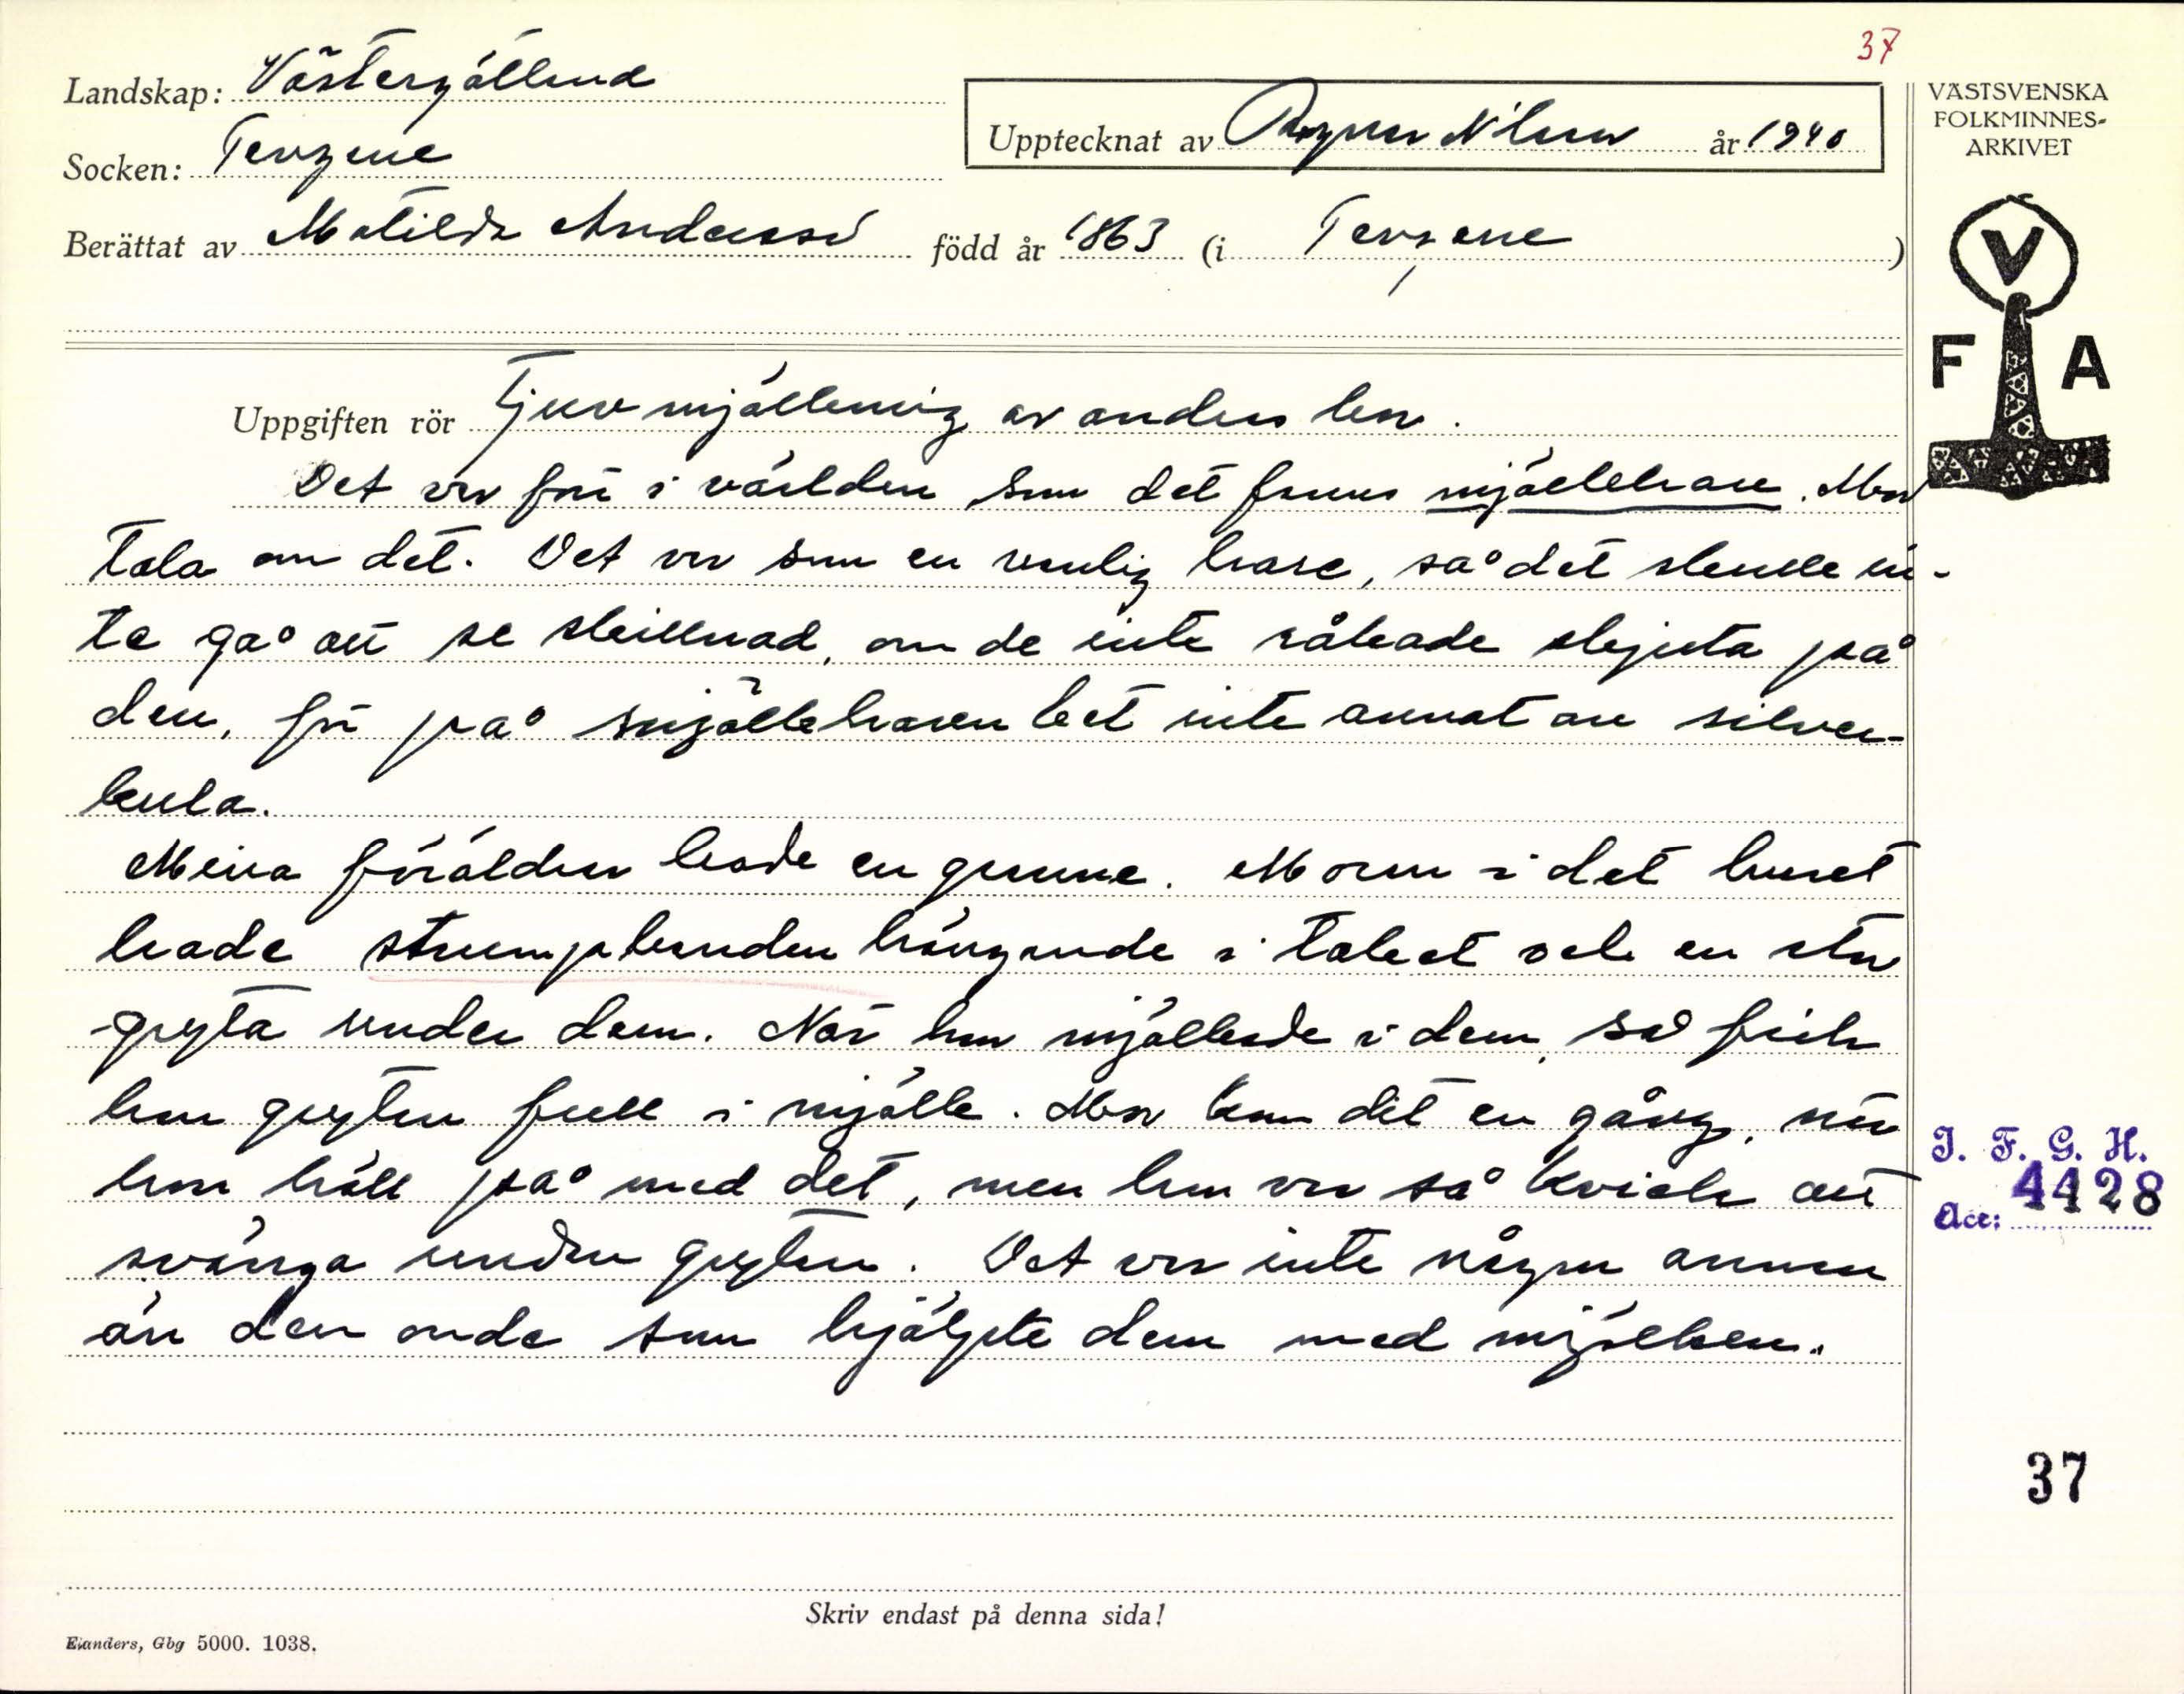 37
Landskap: Västergötland
Upptecknat av Ragnar Nilsson år 1940
Socken: Torsene
Berättat av Matilda Andersson född år 1863 (i Torsene)
VÄSTSVENSKA
FOLKMINNES-
ARKIVET
V
F A
Uppgiften rör Tjuvmjölkning av andras kor.
Det var förr i världen som det fanns mjölkhare. Mor
tala om det. Det var som en vanlig hare, så det skulle in-
te gå att se skillnad, om de inte råkade skjuta på
den, för på mjölkeharen bet inte annat än silver-
kula.
Mina föräldrar hade en granne. Morm i det huset
hade strumpbanden hängande i taket och en stor
gryta under dem. När hon mjölkade i dem, så fick
hon grytan full i mjölk. Mor kom dit en gång, när
hon höll på med det, men hon var så kvick att
svänga undan grytan. Det var inte någon annan
än den onde som hjälpte dem med mjölken.
I. F. G. H.
Acc: 4428
37
Skriv endast på denna sida!
Elanders, Gbg 5000. 1038.